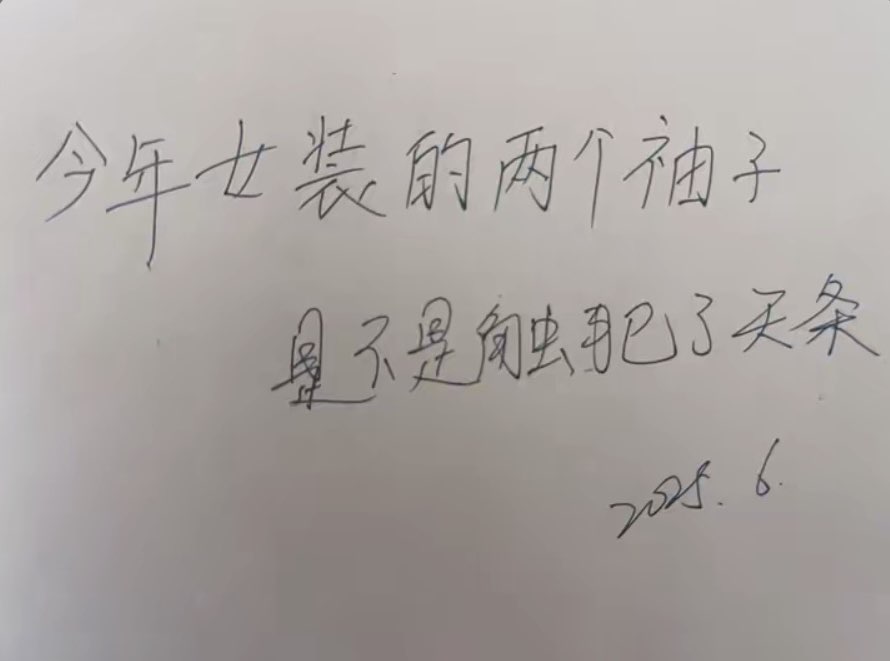 今年女装的两个袖子
是不是触犯了天条
2025.6.